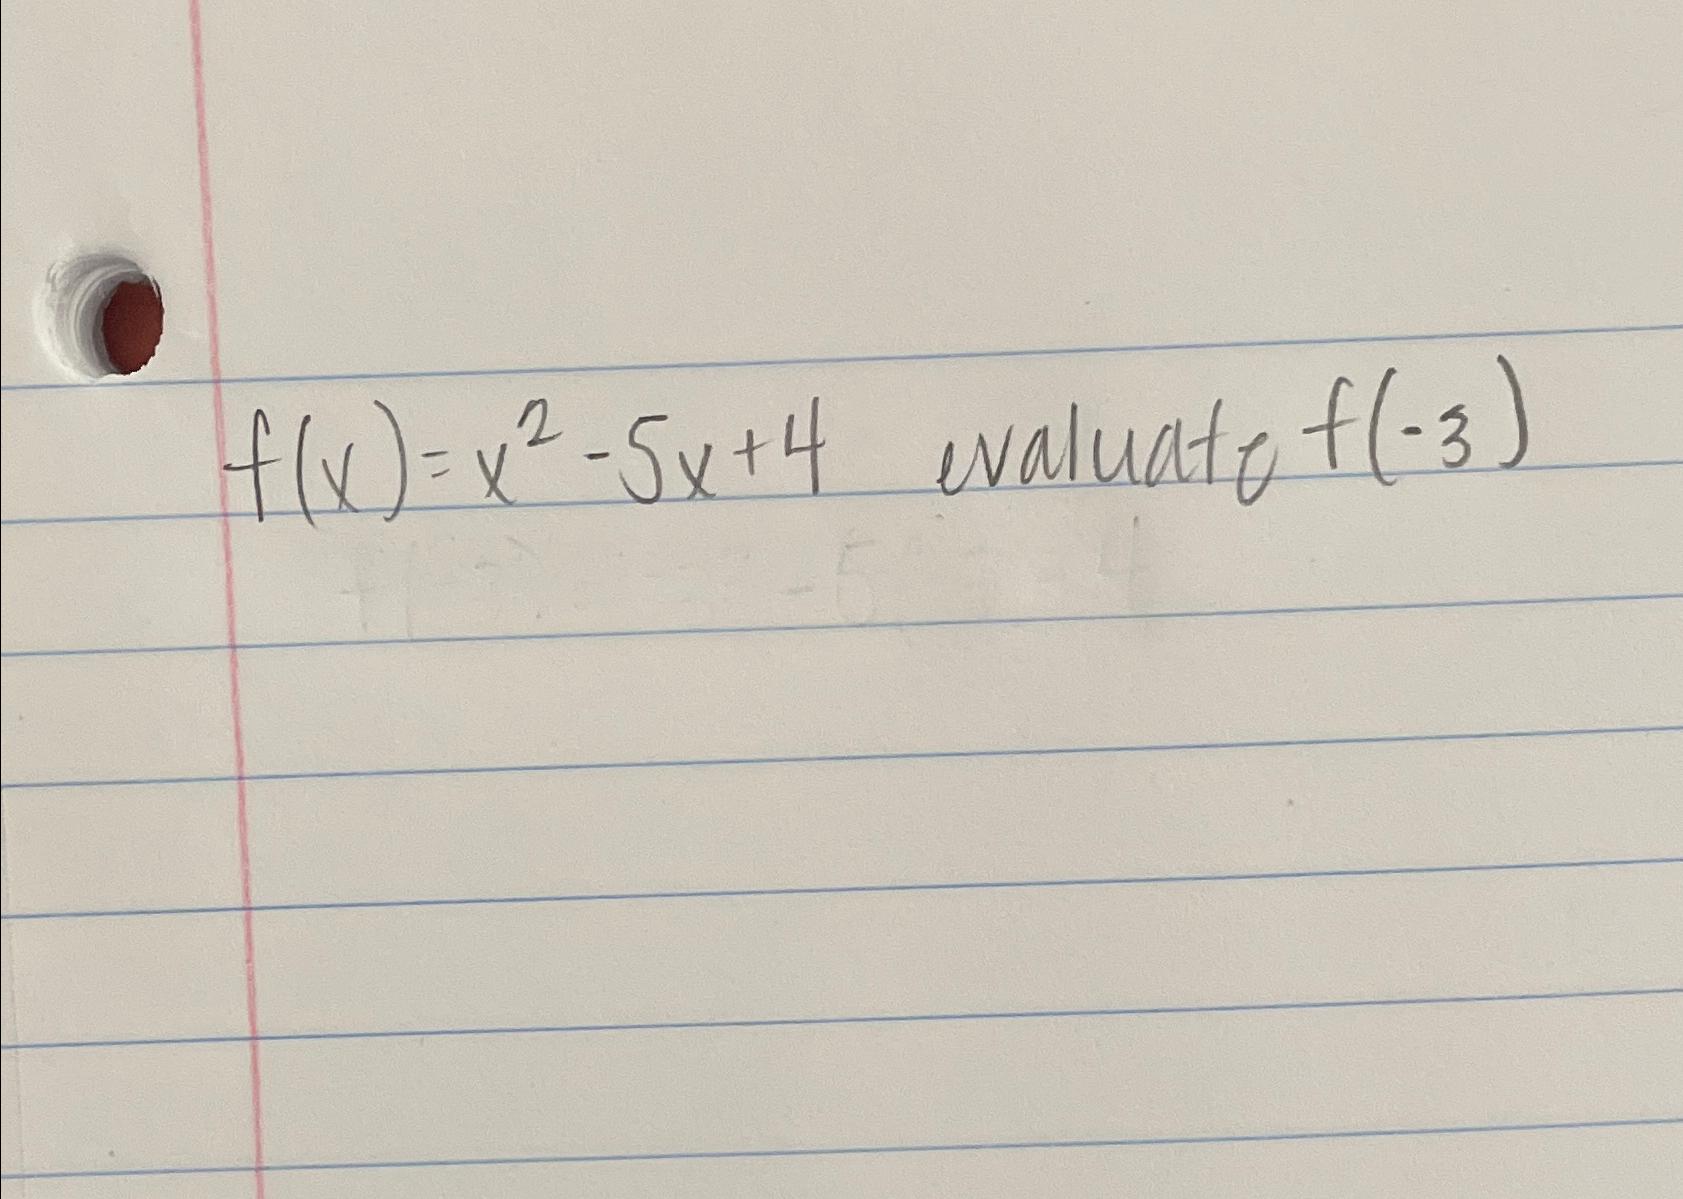 f(x)=x² -5x+4 evaluate f(-3)